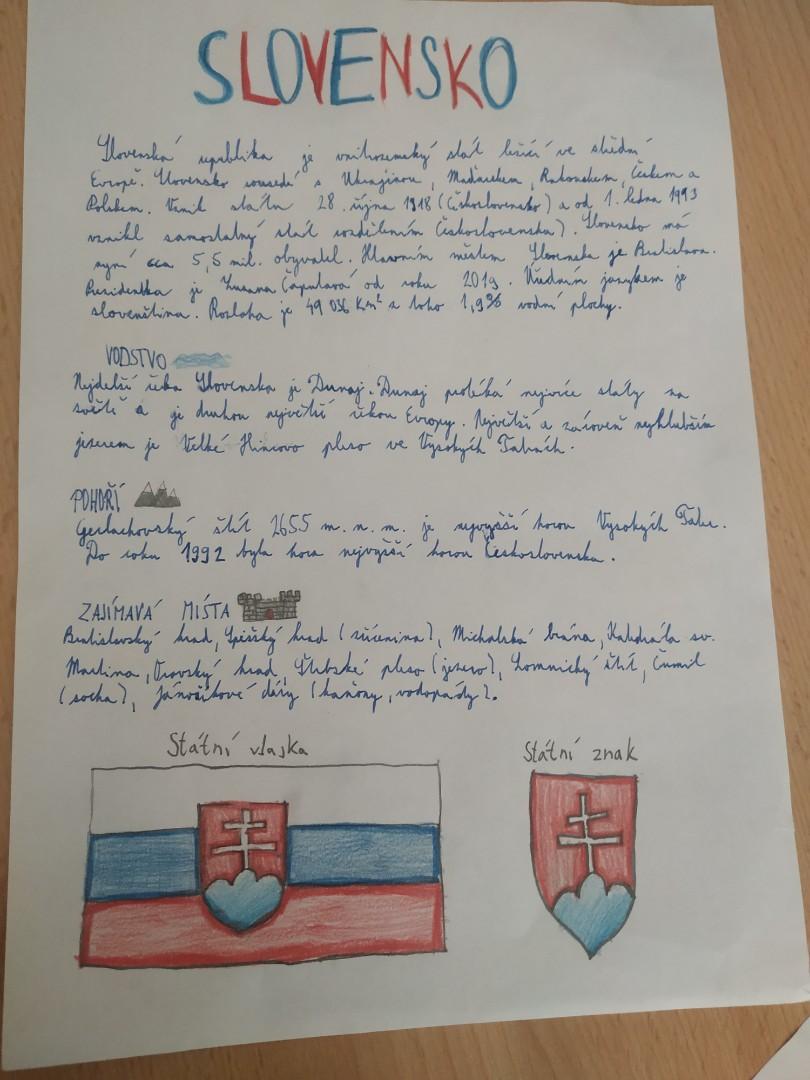 SLOVENSKO
Slovenská republika je vnitrozemský stát ležící ve střední
Evropě. Slovensko sousedí s Ukrajinou, Maďarskem, Rakouskem, Českem a
Polskem. Vznik státu 28. října 1918 (Československo) a od 1. ledna 1993
vznikl samostatný stát rozdělením Československa). Slovensko má
nyní cca 5,5 mil. obyvatel. Hlavním městem Slovenska je Bratislava.
Prezidentka je Zuzana Čaputová od roku 2019. Úředním jazykem je
slovenština. Rozloha je 49 036 Km² z toho 1,9% vodní plochy.
VODSTVO
Nejdelší řeka Slovenska je Dunaj. Dunaj protéká nejvíce státy na
světě a je druhou největší řekou Evropy. Největší a zároveň nejhlubším
jezerem je Velké Hincovo pleso ve Vysokých Tatrách.
POHOŘÍ
Gerlachovský štít 2655 m. n. m. je nejvyšší horou Vysokých Tater.
Do roku 1992 byla hora nejvyšší horou Československa.
ZAJÍMAVÁ MÍSTA
Bratislavský hrad, Spišský hrad (zřícenina), Michalská brána, Katedrála sv.
Martina, Oravský hrad, Štrbské pleso (jezero), Lomnický štít, Čumil
(socha), Jánošíkové diery (kaňony, vodopády).
Státní vlajka
Státní znak